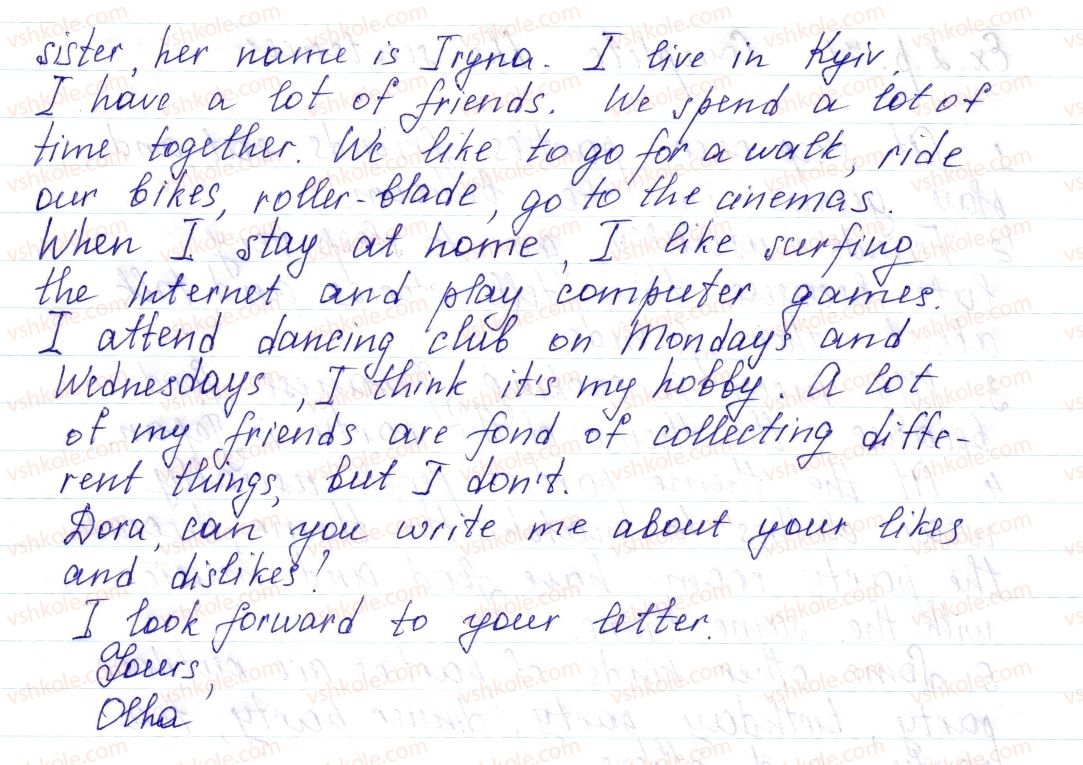 sister, her name is Iryna. I live in Kyiv.
I have a lot of friends. We spend a lot of
time together. We like to go for a walk, ride
our bikes, roller-blade, go to the cinemas.
When I stay at home, I like surfing
the Internet and play computer games.
I attend dancing club on Mondays and
Wednesdays, I think it's my hobby. A lot
of my friends are fond of collecting diffe-
rent things, but I don't.
Dora, can you write me about your likes
and dislikes!
I look forward to your letter.
Yours,
Olha